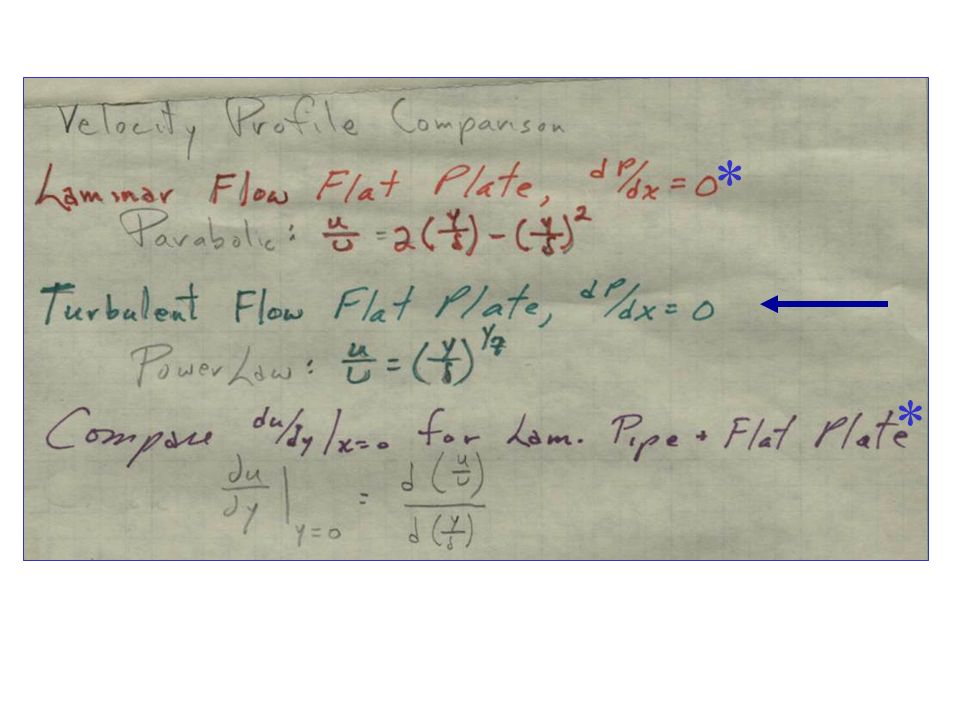 Velocity Profile Comparison
Laminar Flow Flat Plate, dP/dx = 0 *
Parabolic: u/U = 2(y/δ) - (y/δ)²
Turbulent Flow Flat Plate, dP/dx = 0
Power Law: u/U = (y/δ)^1/7
Compare du/dy|x=0 for Lam. Pipe + Flat Plate *
du/dy|y=0 = d(u/U)/d(y/δ)